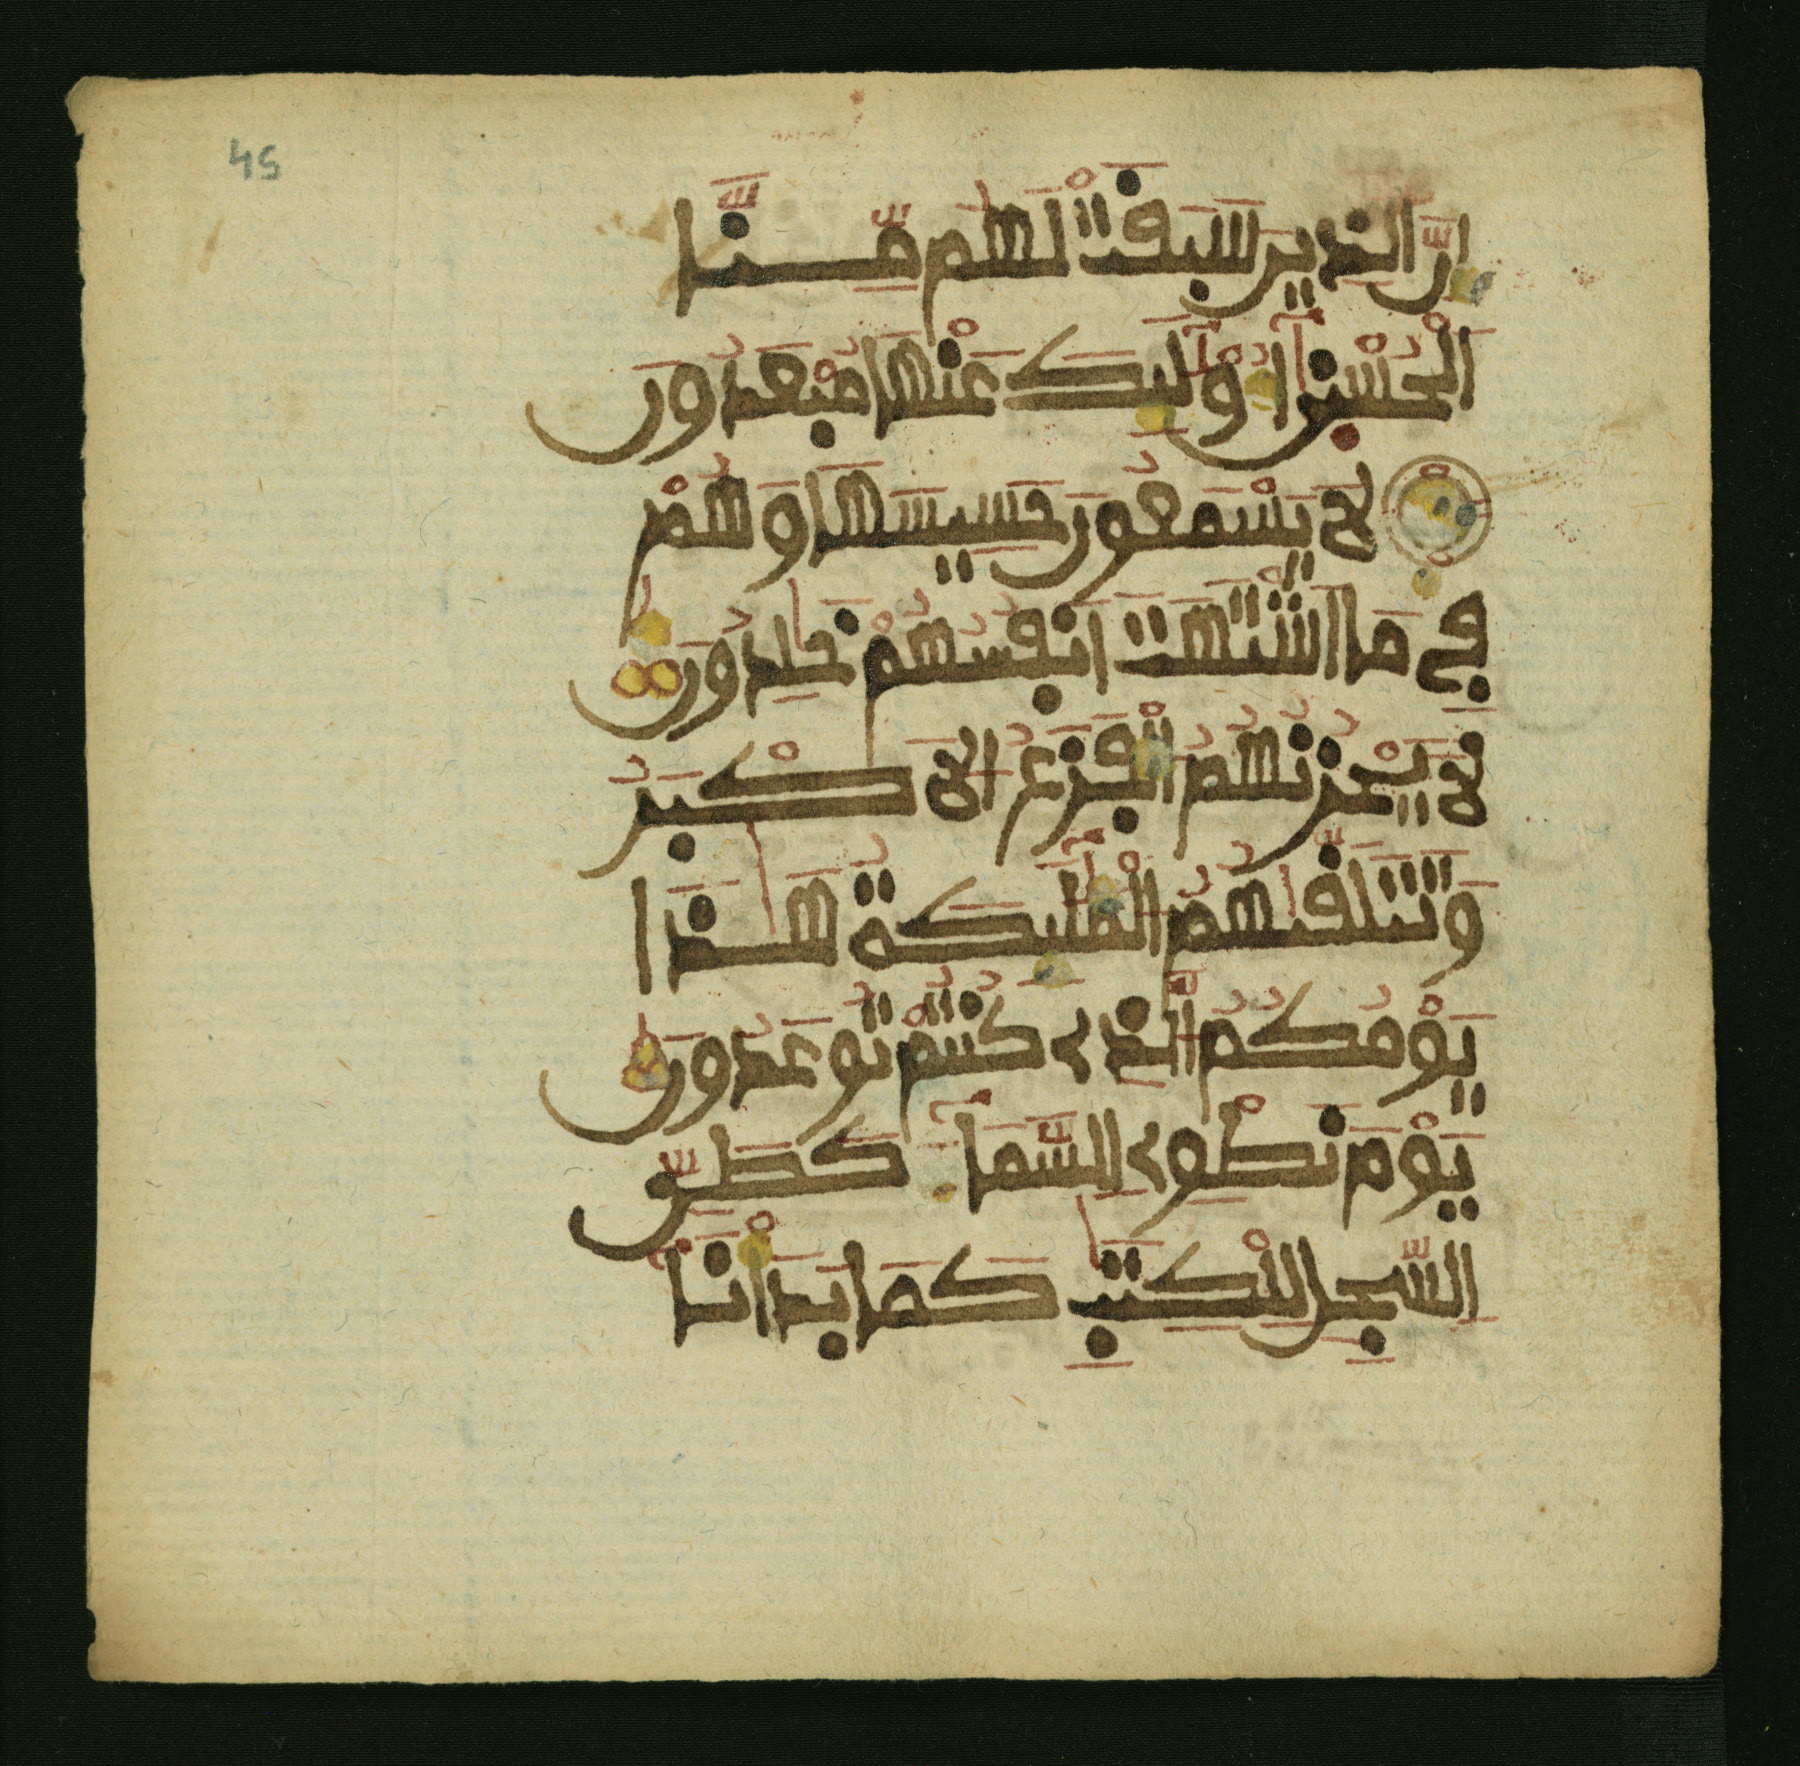 45
اِنَّ الذِينَ سَبَقَتْ لَهُم مِّنَّا
الْحُسْنىٰٓ أُوْلَٰٓئِكَ عَنْهَا مُبْعَدُونَ
لَا يَسْمَعُونَ حَسِيسَهَا وَهُمْ
فِي مَا اَشْتَهَتَ اَنفُسُهُمْ خَٰلِدُونَ
لَا يَحْزُنُهُمُ الْفَزَعُ الَاكْبَرُ
وَتَتَلَقَّيٰهُمُ الْمَلَٰٓئِكَةُ هَٰذَا
يَوْمُكُمُ الَّذِے كُنتُمْ تُوعَدُونَ
يَوْمَ نَطْوِے السَّمَآءَ كَطَيِّ
السِّجِلِّ لِلْكِتَٰبِ كَمَا بَدَأْنَا